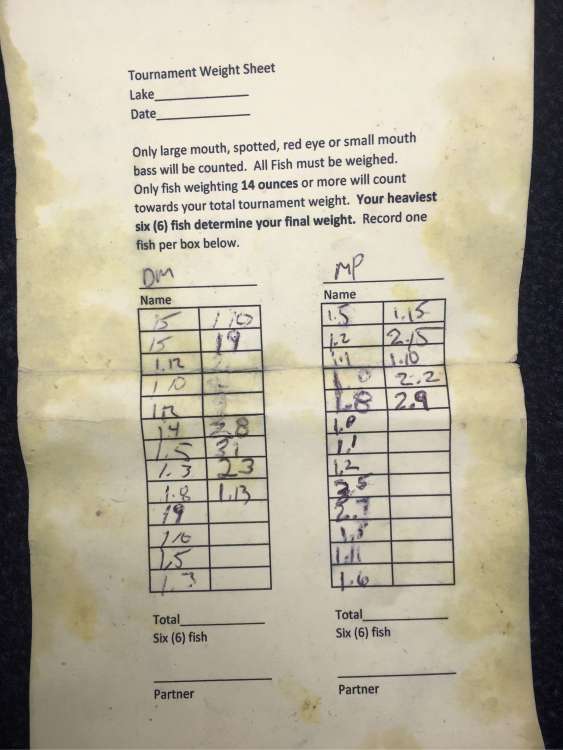 Tournament Weight Sheet
Lake
Date
Only large mouth, spotted, red eye or small mouth
bass will be counted. All Fish must be weighed.
Only fish weighting 14 ounces or more will count
towards your total tournament weight. Your heaviest
six (6) fish determine your final weight. Record one
fish per box below.
DM
Name
15
15 19
1.12
1.10
28
1.5 31
1.3 23
1.8 1.13
19
1.5
1.3
Total
Six (6) fish
Partner
MP
Name
1.5 1.15
1.2 2.15
1.1 1.10
2.2
1.8 2.9
1.0
1.1
1.2
2.5
2.7
1.11
1.6
Total
Six (6) fish
Partner